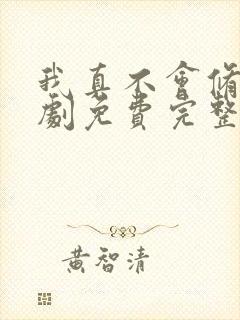 我真不會脩
劇免費完整
黃智清